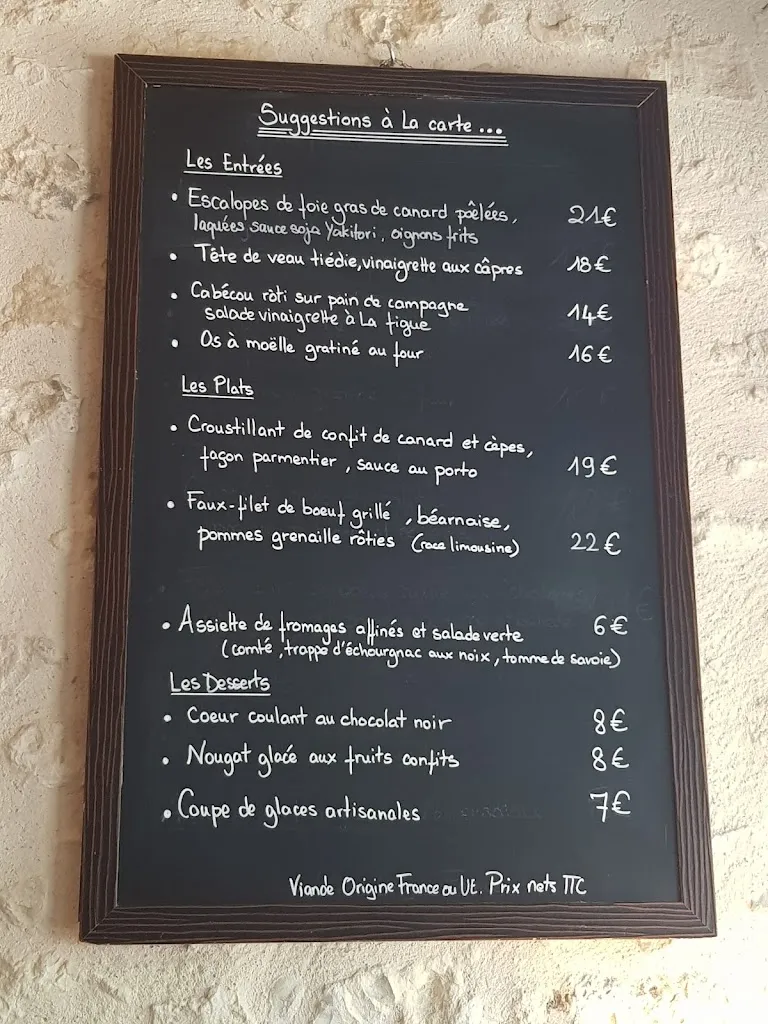 Suggestions à La carte ...
Les Entrées
• Escalopes de foie gras de canard poêlées, 21€
laquées sauce soja Yakitori, oignons frits
• Tête de veau tiédie, vinaigrette aux câpres 18€
• Cabécou rôti sur pain de campagne
salade vinaigrette à La figue 14€
• Os à moëlle gratiné au four 16€
Les Plats
• Croustillant de confit de canard et cèpes,
façon parmentier, sauce au porto 19€
• Faux-filet de boeuf grillé, béarnaise,
pommes grenaille rôties (race limousine) 22€
• Assiette de fromages affinés et salade verte 6€
(comté, trappe d'échourgnac aux noix, tomme de savoie)
Les Desserts
• Coeur coulant au chocolat noir 8€
• Nougat glacé aux fruits confits 8€
• Coupe de glaces artisanales 7€
Viande Origine France ou UE. Prix nets TTC